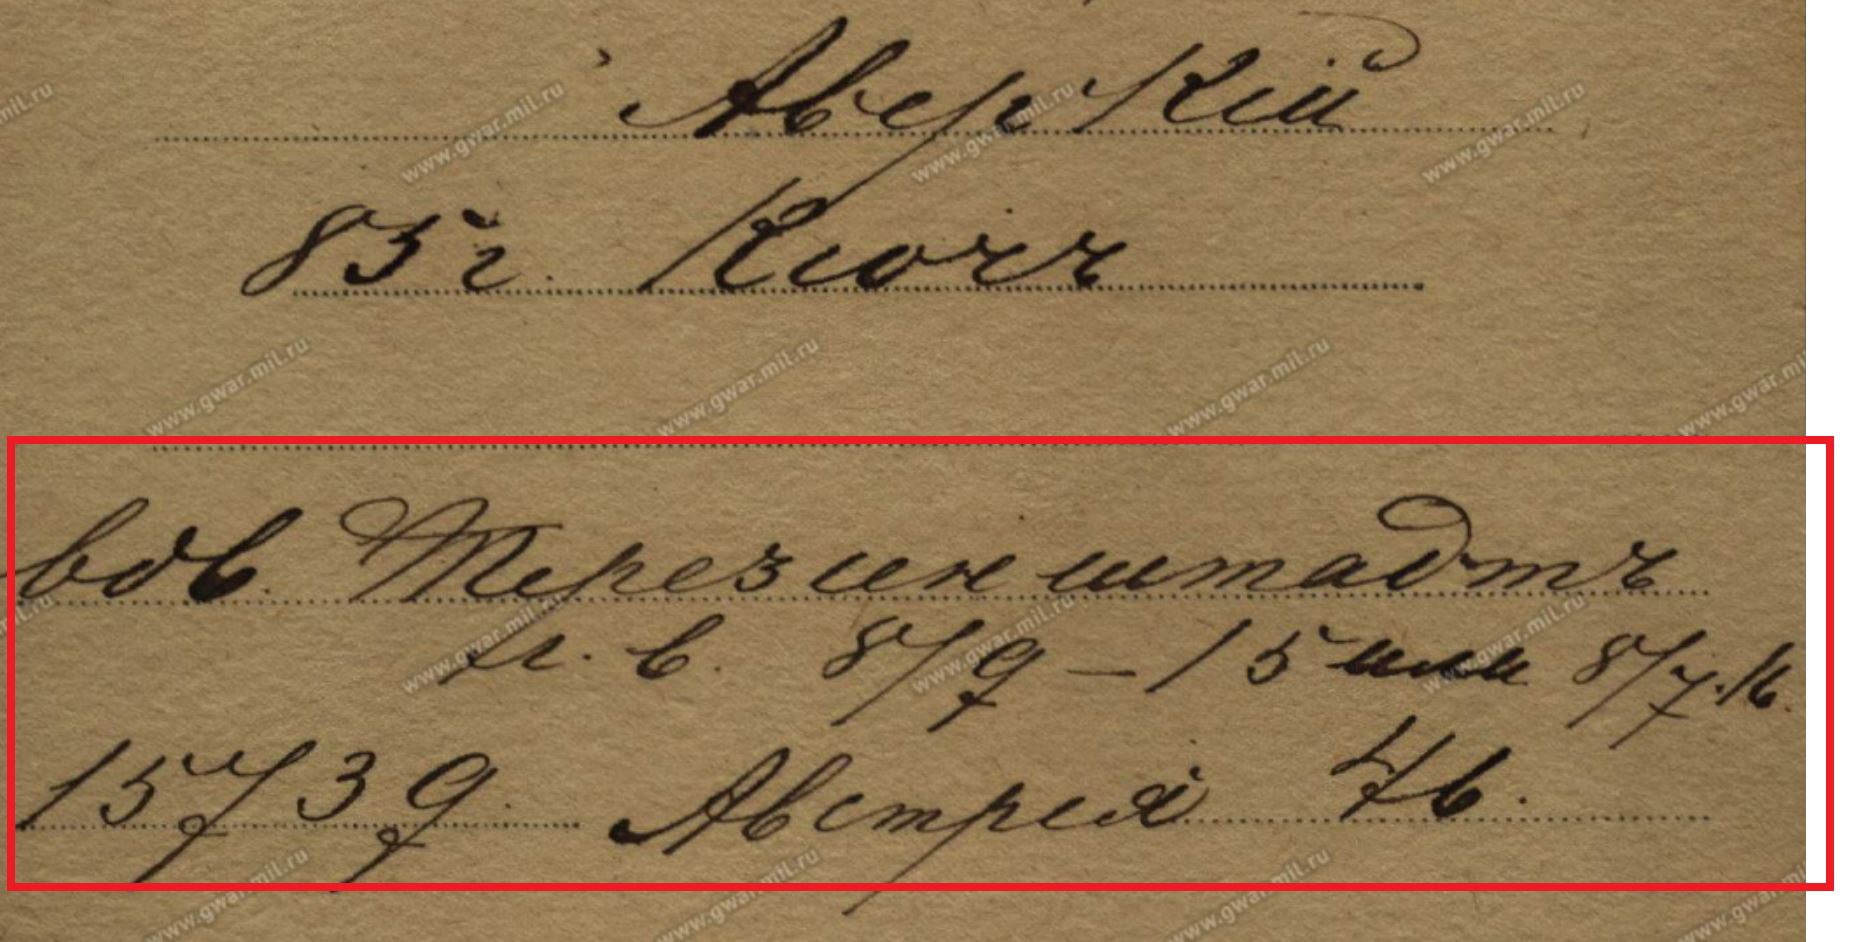 Аверкій
85 г. Кючъ
вов. Терезинштадтъ
п. в. 8/9 – 15 или 8/7.16.
15739. Австрія 46.
www.gwar.mil.ru